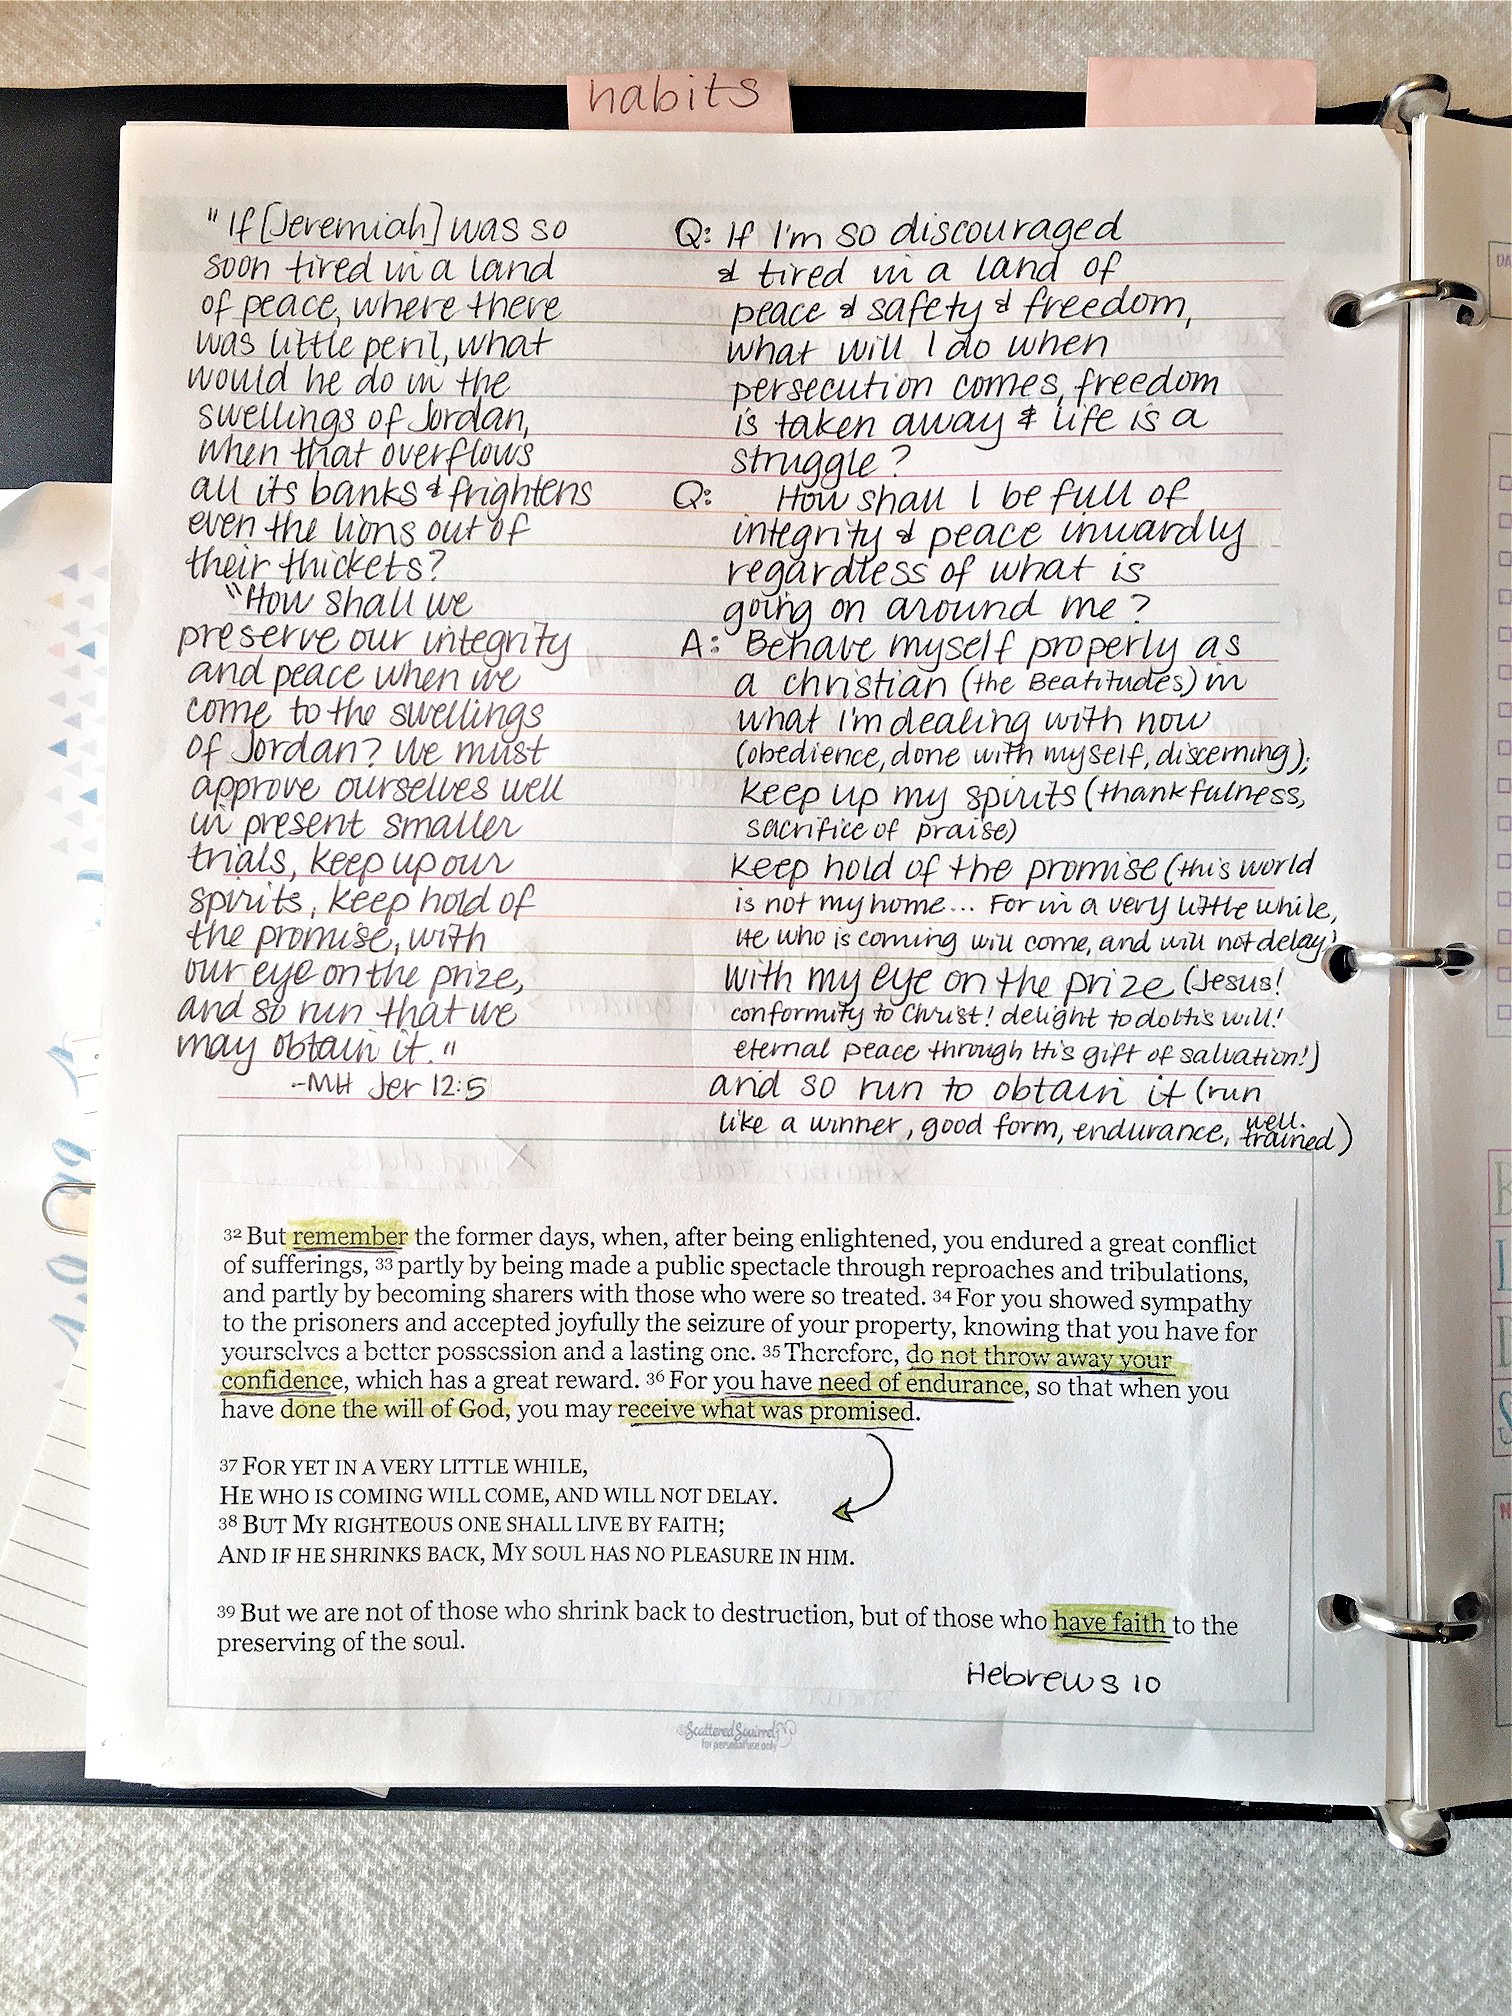 habits
"If [Jeremiah] was so
soon tired in a land
of peace, where there
was little peril, what
would he do in the
swellings of Jordan,
when that overflows
all its banks & frightens
even the lions out of
their thickets?
"How shall we
preserve our integrity
and peace when we
come to the swellings
of Jordan? We must
approve ourselves well
in present smaller
trials, keep up our
spirits, keep hold of
the promise, with
our eye on the prize,
and so run that we
may obtain it."
-MH Jer 12:5
Q: If I'm so discouraged
& tired in a land of
peace & safety & freedom,
what will I do when
persecution comes, freedom
is taken away & life is a
struggle?
Q: How shall I be full of
integrity & peace inwardly
regardless of what is
going on around me?
A: Behave myself properly as
a christian (the Beatitudes) in
what I'm dealing with now
(obedience, done with myself, discerning);
keep up my spirits (thankfulness,
sacrifice of praise)
keep hold of the promise (this world
is not my home... For in a very little while,
He who is coming will come, and will not delay)
with my eye on the prize (Jesus!
conformity to Christ! delight to do His will!
eternal peace through His gift of salvation!)
and so run to obtain it (run
like a winner, good form, endurance, well.
trained)
32 But remember the former days, when, after being enlightened, you endured a great conflict
of sufferings, 33 partly by being made a public spectacle through reproaches and tribulations,
and partly by becoming sharers with those who were so treated. 34 For you showed sympathy
to the prisoners and accepted joyfully the seizure of your property, knowing that you have for
yourselves a better possession and a lasting one. 35 Therefore, do not throw away your
confidence, which has a great reward. 36 For you have need of endurance, so that when you
have done the will of God, you may receive what was promised.
37 FOR YET IN A VERY LITTLE WHILE,
HE WHO IS COMING WILL COME, AND WILL NOT DELAY.
38 BUT MY RIGHTEOUS ONE SHALL LIVE BY FAITH;
AND IF HE SHRINKS BACK, MY SOUL HAS NO PLEASURE IN HIM.
39 But we are not of those who shrink back to destruction, but of those who have faith to the
preserving of the soul.
Hebrews 10
©ScatteredSquirrel
for personal use only